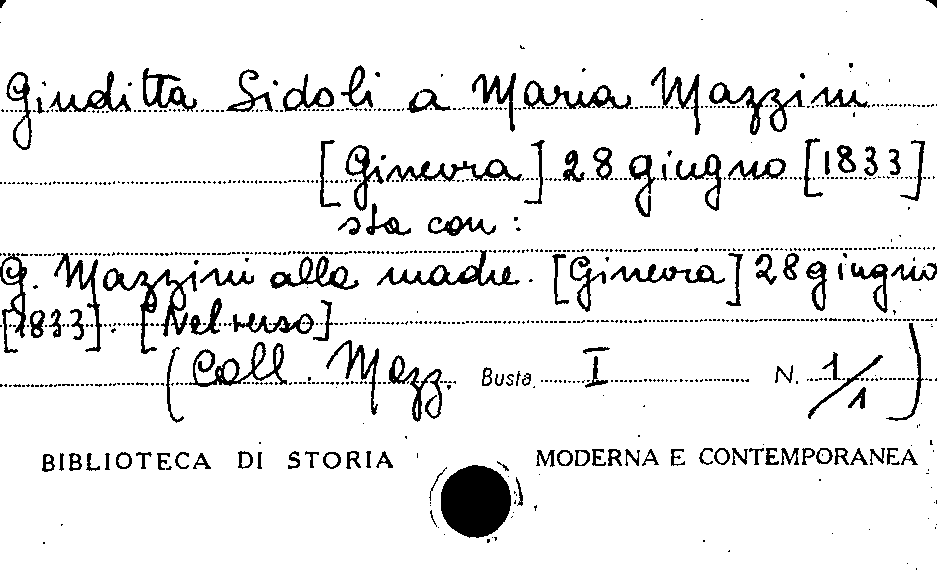 Giuditta Sidoli a Maria Mazzini
[Ginevra] 28 giugno [1833]
sta con :
G. Mazzini alla madre. [Ginevra] 28 giugno
[1833]. [Nel verso]
(Coll. Mazz. Busta I N. 1/1)
BIBLIOTECA DI STORIA MODERNA E CONTEMPORANEA